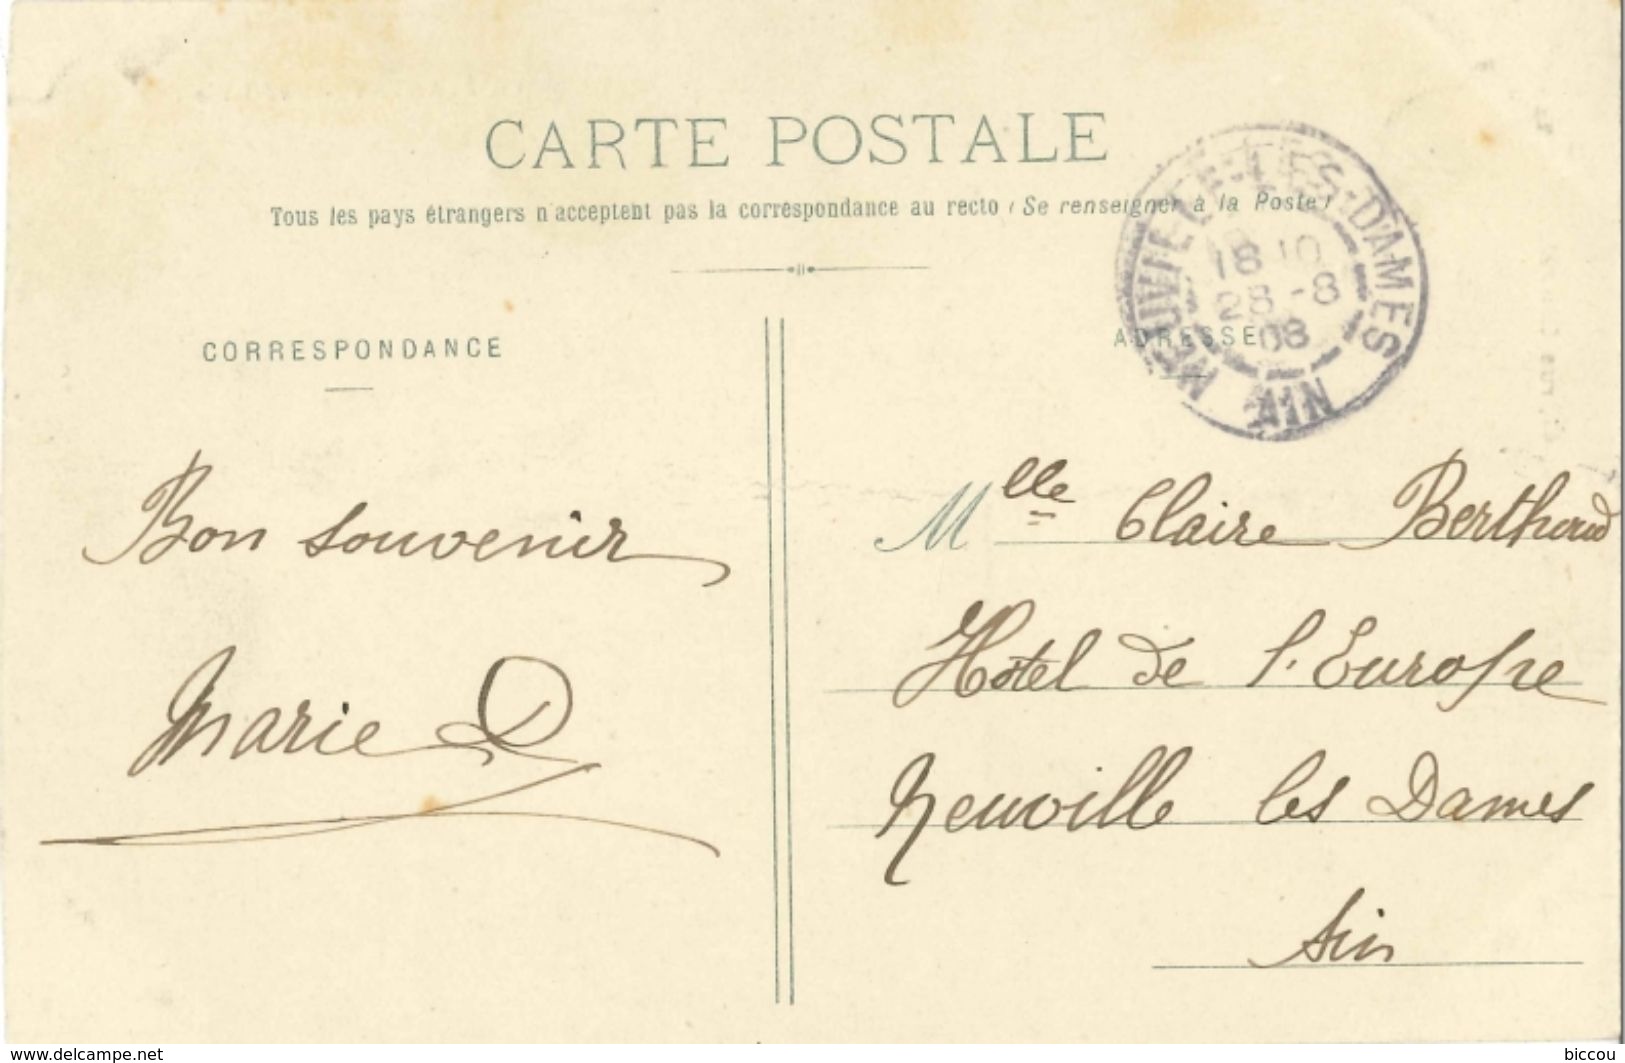 CARTE POSTALE
Tous les pays étrangers n'acceptent pas la correspondance au recto (Se renseigner à la Poste)
CORRESPONDANCE
ADRESSE
NEUVILLE-LES-DAMES
18 10
28 -8
08
AIN
Bon souvenir
Marie D
Mlle Claire Berthoud
Hôtel de l'Europe
Neuville les Dames
Ain
www.delcampe.net
biccou